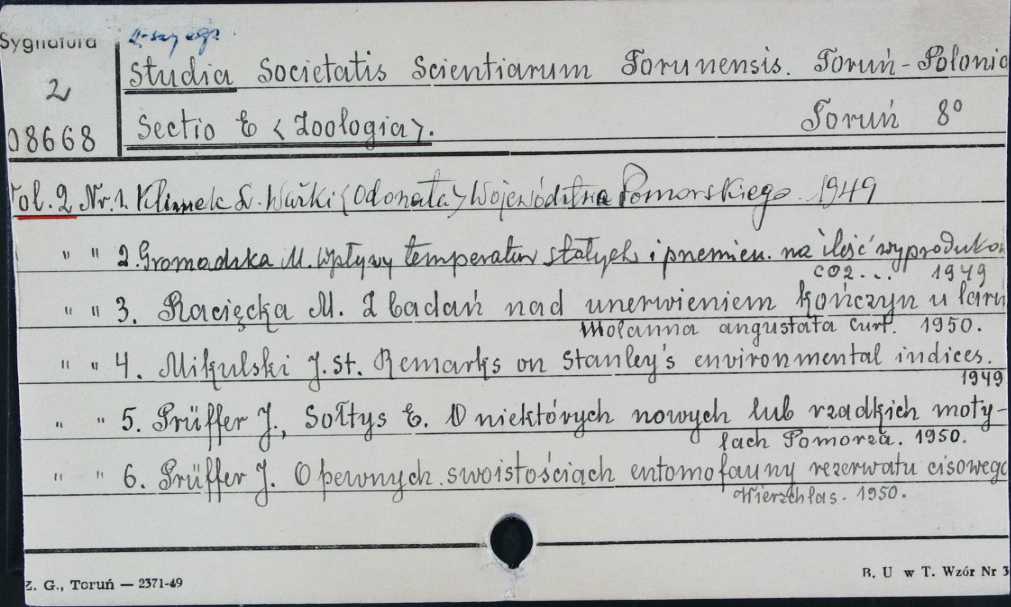 Sygnatura 2-szy egz.
Studia Societatis Scientiarum Torunensis. Toruń - Polonia
2
Sectio E <Zoologia>. Toruń 8°
08668
Vol. 2 Nr. 1. Klimek L. Ważki <Odonata> Województwa Pomorskiego. 1949
" " 2. Gromadzka M. Wpływ temperatur stałych i przemien. na ilość wyproduko
CO2... 1949
" " 3. Racięcka M. Z badań nad unerwieniem kończyn u larw
Molanna angustata Curt. 1950.
" " 4. Mikulski J. St. Remarks on Stanley's environmental indices.
1949
" " 5. Prüffer J., Sołtys E. O niektórych nowych lub rzadkich moty-
lach Pomorza. 1950.
" " 6. Prüffer J. O pewnych swoistościach entomofauny rezerwatu cisowego
Wierzchlas. 1950.
Z. G., Toruń — 2371-49
B. U w T. Wzór Nr 3